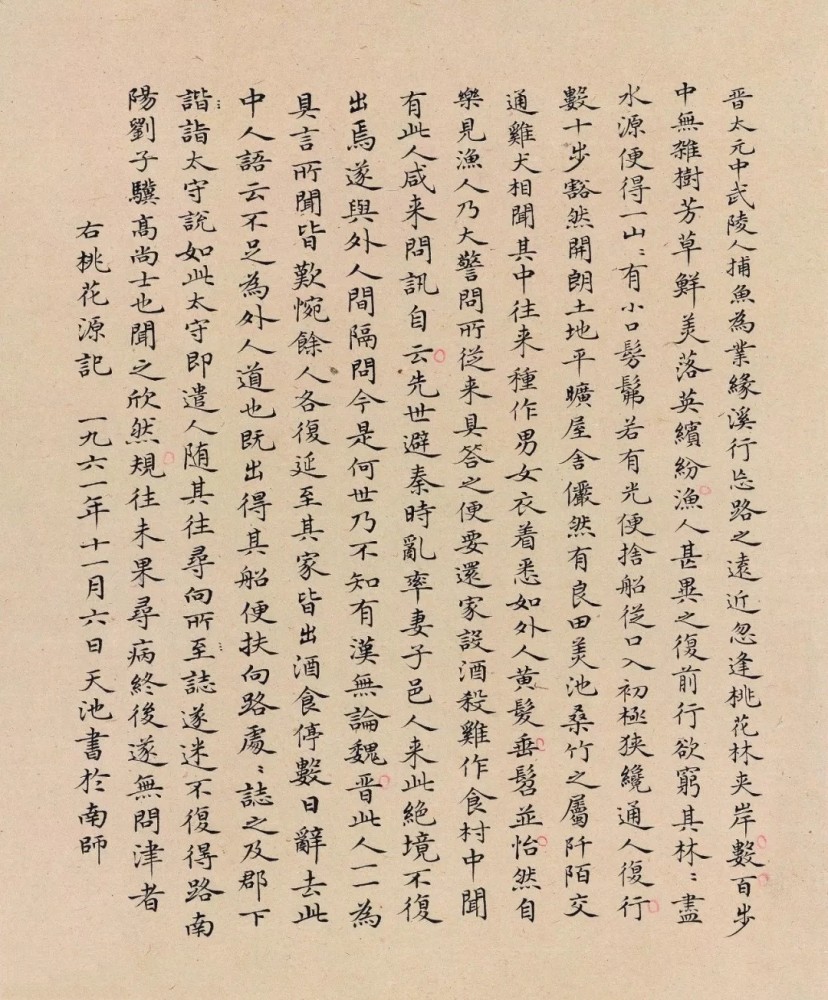 晋太元中武陵人捕魚為業緣溪行忘路之遠近忽逢桃花林夾岸數百步
中無雜樹芳草鮮美落英繽紛漁人甚異之復前行欲窮其林〻盡
水源便得一山〻有小口髣髴若有光便捨船從口入初極狹纔通人復行
數十步豁然開朗土地平曠屋舍儼然有良田美池桑竹之屬阡陌交
通雞犬相聞其中往来種作男女衣着悉如外人黄髮垂髫並怡然自
樂見漁人乃大驚問所從来具答之便要還家設酒殺雞作食村中聞
有此人咸来問訊自云先世避秦時亂率妻子邑人来此絶境不復
出焉遂與外人間隔問今是何世乃不知有漢無論魏晋此人一一為
具言所聞皆歎惋餘人各復延至其家皆出酒食停數日辭去此
中人語云不足為外人道也既出得其船便扶向路處〻誌之及郡下
詣太守説如此太守即遣人随其往尋向所誌遂迷不復得路南
陽劉子驥髙尚士也聞之欣然規往未果尋病終後遂無問津者
右桃花源記 一九六一年十一月六日 天池書於南師